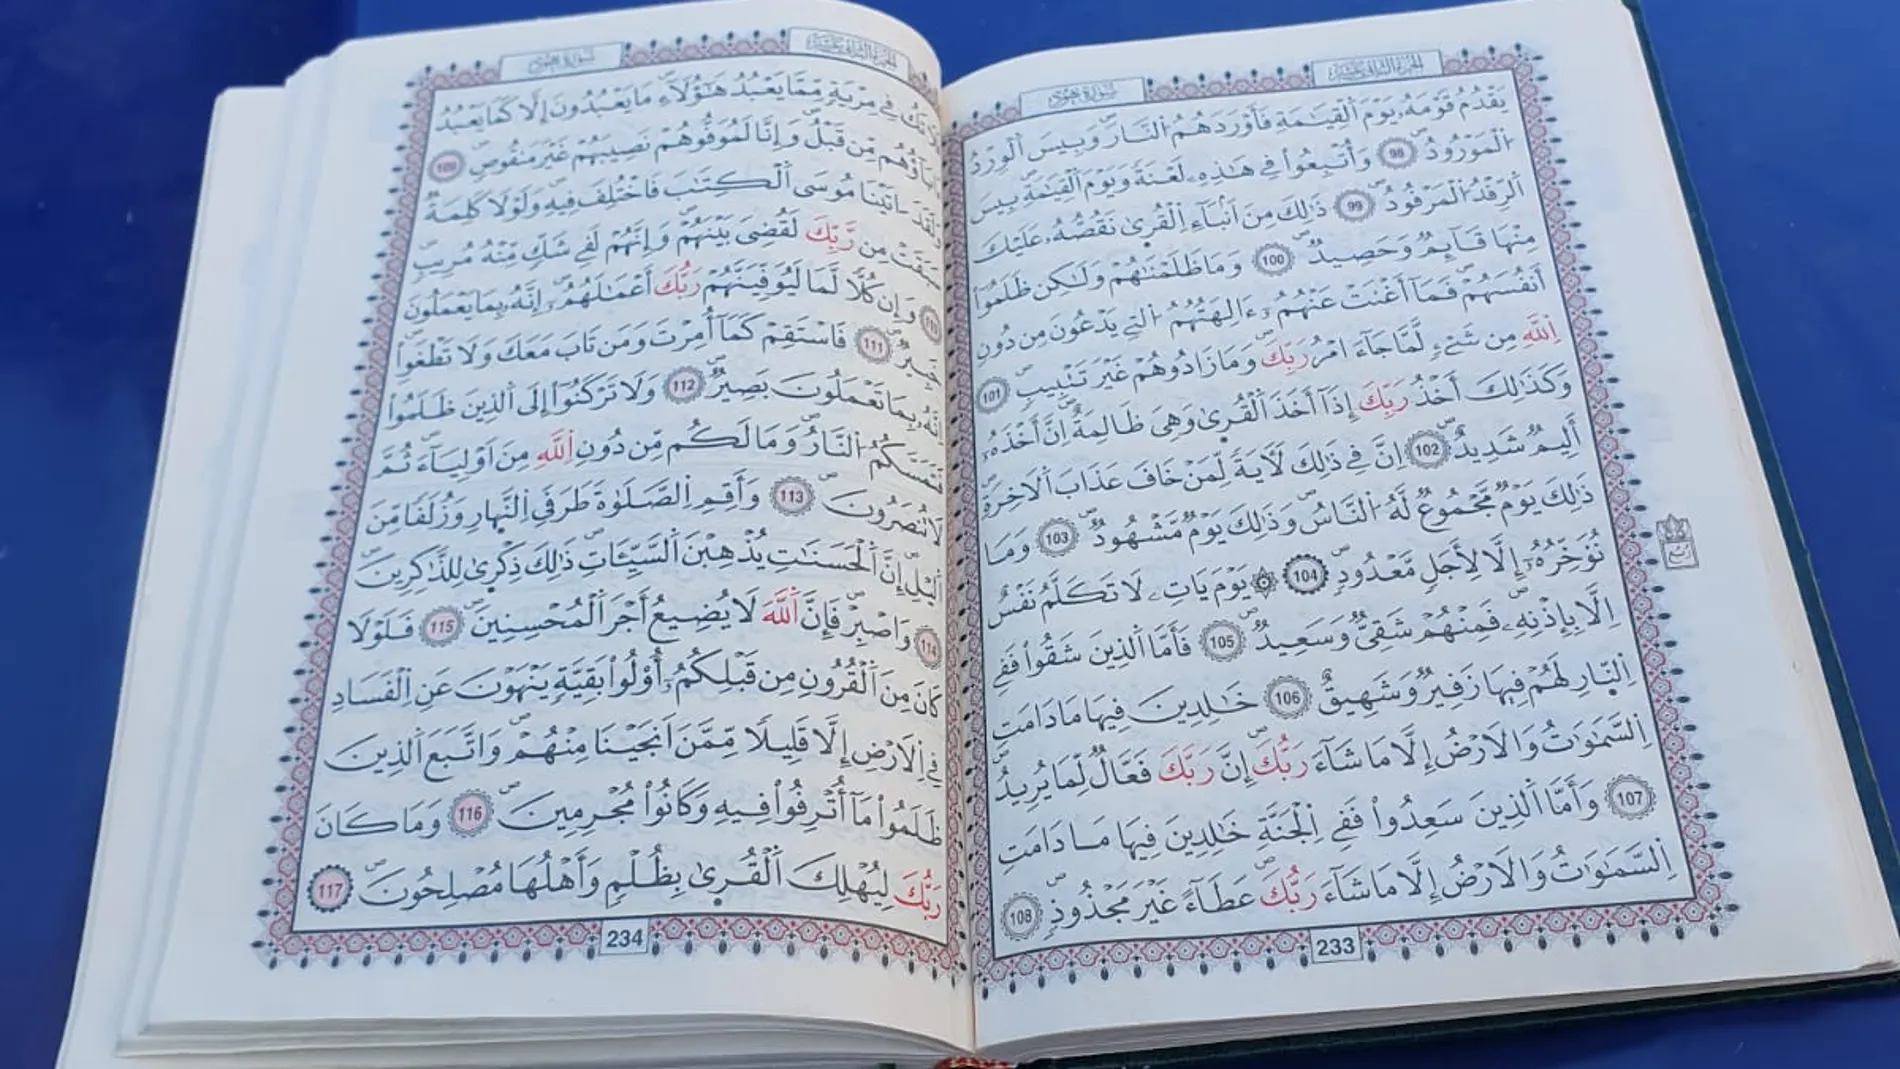 الجزء الثاني عشر
سورة هود
يَقْدُمُ قَوْمَهُۥ يَوْمَ اَ۬لْقِيَٰمَةِ فَأَوْرَدَهُمُ اُ۬لنَّارَۖ وَبِيسَ اَ۬لْوِرْدُ
اُ۬لْمَوْرُودُۖ 98 وَأُتْبِعُواْ فِے هَٰذِهِۦ لَعْنَةٗ وَيَوْمَ اَ۬لْقِيَٰمَةِۖ بِيسَ
اَ۬لرِّفْدُ اُ۬لْمَرْفُودُۖ 99 ذَٰلِكَ مِنَ اَنۢبَآءِ اِ۬لْقُر۪يٰ نَقُصُّهُۥ عَلَيْكَ
مِنْهَا قَآئِمٞ وَحَصِيدٞۖ 100 وَمَا ظَلَمْنَٰهُمْ وَلَٰكِن ظَلَمُوٓاْ
أَنفُسَهُمْۖ فَمَآ أَغْنَتْ عَنْهُمُۥٓ ءَالِهَتُهُمُ اُ۬لتِے يَدْعُونَ مِن دُونِ
اِ۬للَّهِ مِن شَےْءٖ لَّمَّا جَآءَ امْرُ رَبِّكَۖ وَمَا زَادُوهُمْ غَيْرَ تَتْبِيبٖۖ 101
وَكَذَٰلِكَ أَخْذُ رَبِّكَ إِذَآ أَخَذَ اَ۬لْقُر۪يٰ وَهِيَ ظَٰلِمَةٌۖ اِنَّ أَخْذَهُۥٓ
أَلِيمٞ شَدِيدٌۖ 102 اِنَّ فِے ذَٰلِكَ لَأٓيَةٗ لِّمَنْ خَافَ عَذَابَ اَ۬لَاخِرَةِۖ
ذَٰلِكَ يَوْمٞ مَّجْمُوعٞ لَّهُ اُ۬لنَّاسُۖ وَذَٰلِكَ يَوْمٞ مَّشْهُودٞۖ 103 وَمَا
نُؤَخِّرُهُۥٓ إِلَّا لِأَجَلٖ مَّعْدُودٖۖ 104 ۞ يَوْمَ يَاتِۦ لَا تَكَلَّمُ نَفْسٌ
اِلَّا بِإِذْنِهِۦۖ فَمِنْهُمْ شَقِيّٞ وَسَعِيدٞۖ 105 فَأَمَّا اَ۬لذِينَ شَقُواْ فَفِے
اِ۬لنّ۪ارِ لَهُمْ فِيهَا زَفِيرٞ وَشَهِيقٌ 106 خَٰلِدِينَ فِيهَا مَا دَامَتِ
اِ۬لسَّمَٰوَٰتُ وَالَارْضُ إِلَّا مَا شَآءَ رَبُّكَۖ إِنَّ رَبَّكَ فَعَّالٞ لِّمَا يُرِيدُۖ
107 وَأَمَّا اَ۬لذِينَ سَعِدُواْ فَفِے اِ۬لْجَنَّةِ خَٰلِدِينَ فِيهَا مَا دَامَتِ
اِ۬لسَّمَٰوَٰتُ وَالَارْضُ إِلَّا مَا شَآءَ رَبُّكَۖ عَطَآءً غَيْرَ مَجْذُوذٖۖ 108
233
الجزء الثاني عشر
سورة هود
تَكُ فِے مِرْيَةٖ مِّمَّا يَعْبُدُ هَٰٓؤُلَآءِۖ مَا يَعْبُدُونَ إِلَّا كَمَا يَعْبُدُ
ءَابَآؤُهُم مِّن قَبْلُۖ وَإِنَّا لَمُوَفُّوهُمْ نَصِيبَهُمْ غَيْرَ مَنقُوصٖۖ 109
وَلَقَدَ اٰتَيْنَا مُوسَي اَ۬لْكِتَٰبَ فَاخْتُلِفَ فِيهِۖ وَلَوْلَا كَلِمَةٞ
سَبَقَتْ مِن رَّبِّكَ لَقُضِيَ بَيْنَهُمْۖ وَإِنَّهُمْ لَفِے شَكّٖ مِّنْهُ مُرِيبٖۖ
110 وَإِن كُلّٗا لَّمَا لَيُوَفِّيَنَّهُمْ رَبُّكَ أَعْمَٰلَهُمُۥٓۖ إِنَّهُۥ بِمَا يَعْمَلُونَ
خَبِيرٞۖ 111 فَاسْتَقِمْ كَمَآ أُمِرْتَ وَمَن تَابَ مَعَكَ وَلَا تَطْغَوِاْۖ
اِنَّهُۥ بِمَا تَعْمَلُونَ بَصِيرٞۖ 112 وَلَا تَرْكَنُوٓاْ إِلَي اَ۬لذِينَ ظَلَمُواْ
فَتَمَسَّكُمُ اُ۬لنَّارُۖ وَمَا لَكُم مِّن دُونِ اِ۬للَّهِ مِنَ اَوْلِيَآءَۖ ثُمَّ
لَا تُنصَرُونَۖ 113 وَأَقِمِ اِ۬لصَّلَوٰةَ طَرَفَيِ اِ۬لنَّه۪ارِ وَزُلَفٗا مِّنَ
اَ۬ليْلِۖ إِنَّ اَ۬لْحَسَنَٰتِ يُذْهِبْنَ اَ۬لسَّيِّـَٔاتِۖ ذَٰلِكَ ذِكْر۪يٰ لِلذَّٰكِرِينَۖ
114 وَاصْبِرْۖ فَإِنَّ اَ۬للَّهَ لَا يُضِيعُ أَجْرَ اَ۬لْمُحْسِنِينَۖ 115 فَلَوْلَا
كَانَ مِنَ اَ۬لْقُرُونِ مِن قَبْلِكُمُۥٓ أُوْلُواْ بَقِيَّةٖ يَنْهَوْنَ عَنِ اِ۬لْفَسَادِ
فِے اِ۬لَارْضِ إِلَّا قَلِيلٗا مِّمَّنَ اَنجَيْنَا مِنْهُمْۖ وَاتَّبَعَ اَ۬لذِينَ
ظَلَمُواْ مَآ أُتْرِفُواْ فِيهِ وَكَانُواْ مُجْرِمِينَۖ 116 وَمَا كَانَ
رَبُّكَ لِيُهْلِكَ اَ۬لْقُر۪يٰ بِظُلْمٖ وَأَهْلُهَا مُصْلِحُونَۖ 117
234